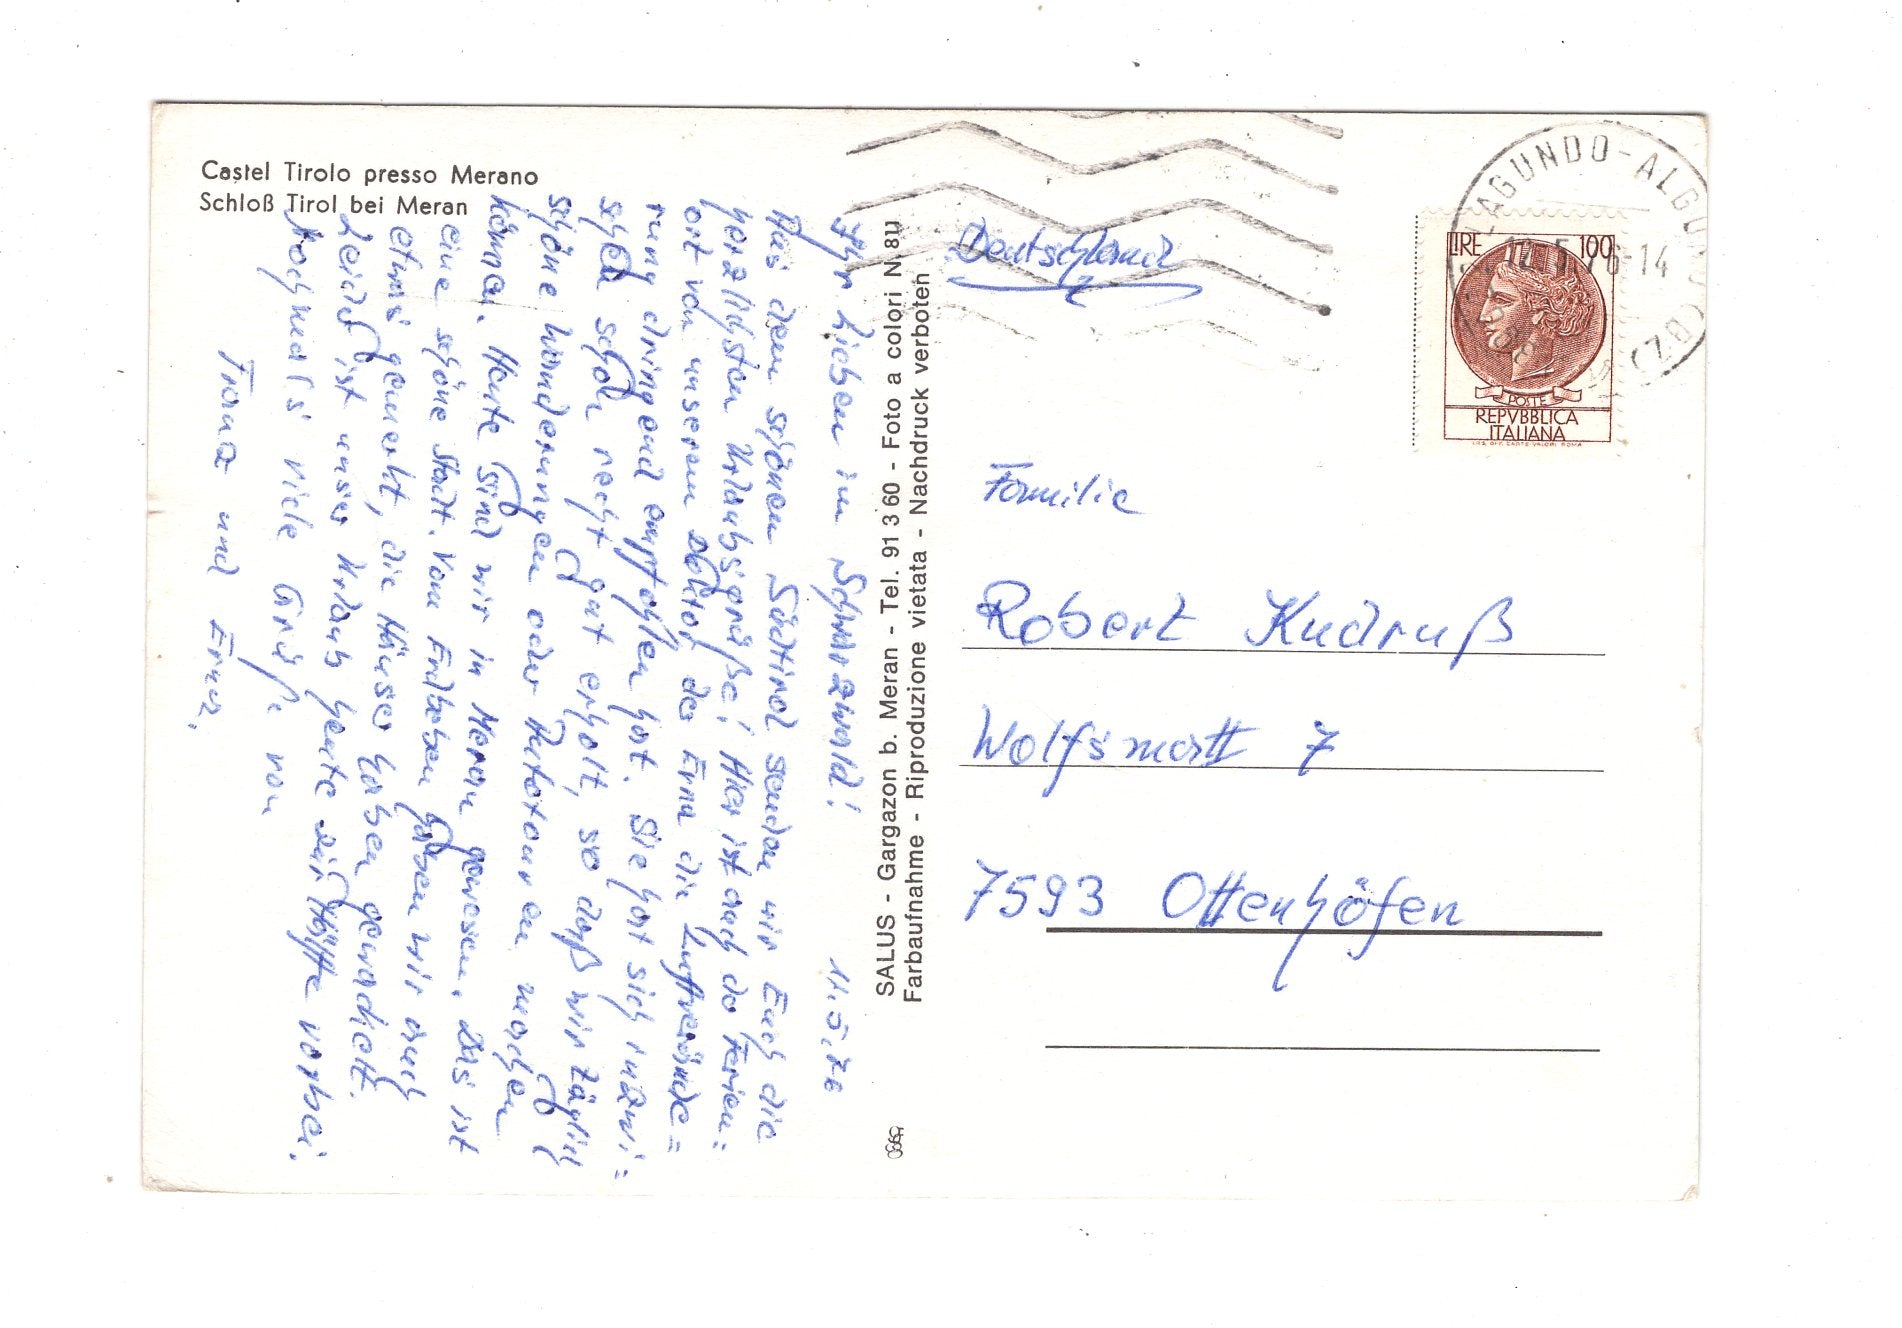 Castel Tirolo presso Merano
Schloß Tirol bei Meran
11.5.76
Ihr Lieben im Schwarzwald!
Aus dem schönen Südtirol senden wir Euch die
herzlichsten Urlaubsgrüße! Hier ist auch der Ferien=
ort von unserem Doktor, der Erna die Luftverände=
rung dringend empfohlen hat. Sie hat sich inzwi=
schen schon recht gut erholt, so daß wir täglich
schöne Wanderungen oder Autotouren machen
können. Heute sind wir in Meran gewesen. Das ist
eine schöne Stadt. Vom Erdbeben haben wir auch
etwas gemerkt, die Häuser haben gewackelt.
Leider ist unser Urlaub heute zur Hälfte vorbei.
Nochmal's viele Grüße von
Franz und Erna.
SALUS - Gargazon b. Meran - Tel. 91 3 60 - Foto a colori N. 8U
Farbaufnahme - Riproduzione vietata - Nachdruck verboten
Deutschland
LAGUNDO-ALGUND (BZ)
5.76-14
LIRE 100
POSTE
REPVBBLICA
ITALIANA
I.P.S. OFF. CARTE-VALORI ROMA
Familie
Robert Kudruß
Wolfsmatt 7
7593 Ottenhöfen